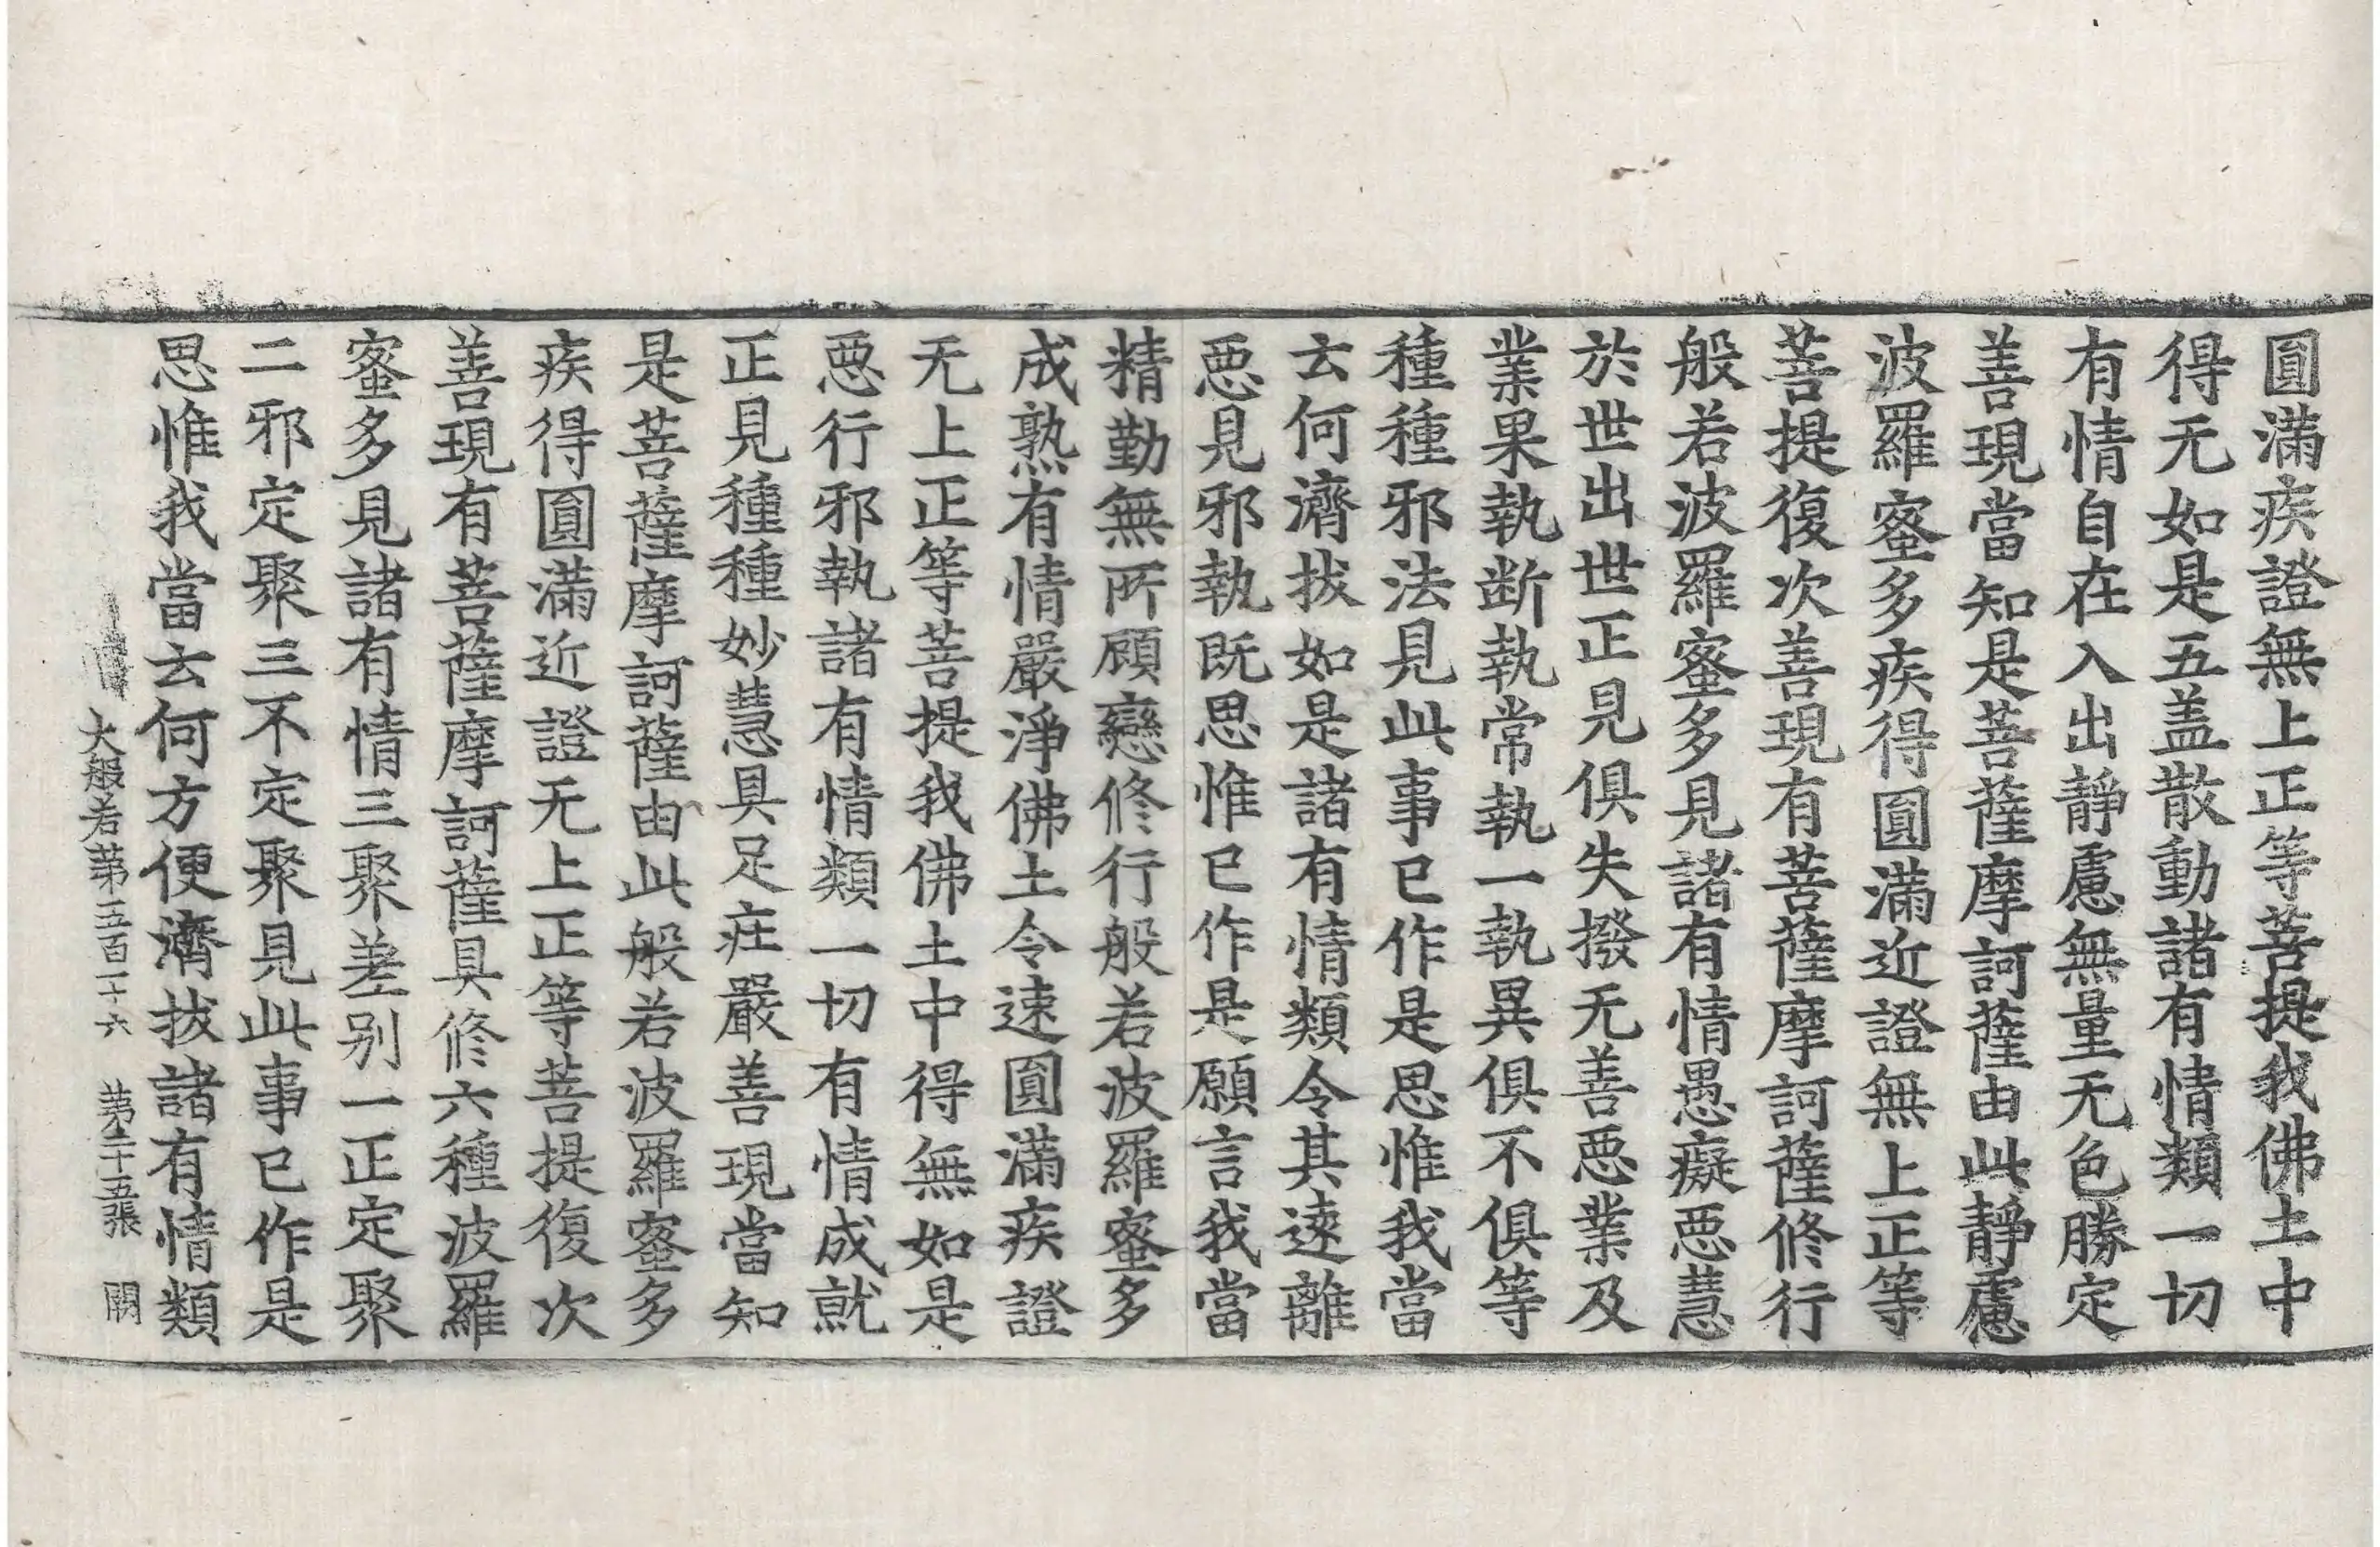 圓滿疾證無上正等菩提我佛土中
得无如是五盖散動諸有情類一切
有情自在入出靜慮無量无色勝定
善現當知是菩薩摩訶薩由此靜慮
波羅蜜多疾得圓滿近證無上正等
菩提復次善現有菩薩摩訶薩修行
般若波羅蜜多見諸有情愚癡惡慧
於世出世正見俱失撥无善惡業及
業果執断執常執一執異俱不俱等
種種邪法見此事已作是思惟我當
云何濟拔如是諸有情類令其遠離
惡見邪執既思惟已作是願言我當
精勤無所顧戀修行般若波羅蜜多
成熟有情嚴淨佛土令速圓滿疾證
无上正等菩提我佛土中得無如是
惡行邪執諸有情類一切有情成就
正見種種妙慧具足庄嚴善現當知
是菩薩摩訶薩由此般若波羅蜜多
疾得圓滿近證无上正等菩提復次
善現有菩薩摩訶薩具修六種波羅
蜜多見諸有情三聚差别一正定聚
二邪定聚三不定聚見此事已作是
思惟我當云何方便濟拔諸有情類
大般若第五百一十六 第二十五張 閼